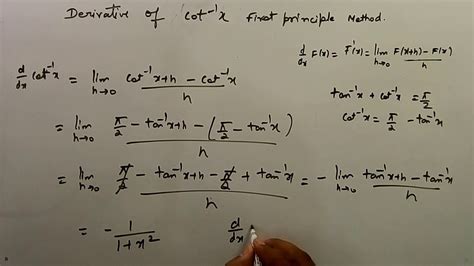 Derivative of cot⁻¹x First principle Method.
d/dx F(x) = F'(x) = lim h→0 F(x+h) - F(x) / h
d/dx cot⁻¹x = lim h→0 cot⁻¹x+h - cot⁻¹x / h
tan⁻¹x + cot⁻¹x = π/2
cot⁻¹x = π/2 - tan⁻¹x
= lim h→0 π/2 - tan⁻¹x+h - (π/2 - tan⁻¹x) / h
= lim h→0 π/2 - tan⁻¹x+h - π/2 + tan⁻¹x / h = - lim h→0 tan⁻¹x+h - tan⁻¹x / h
= - 1 / 1+x² d/dx